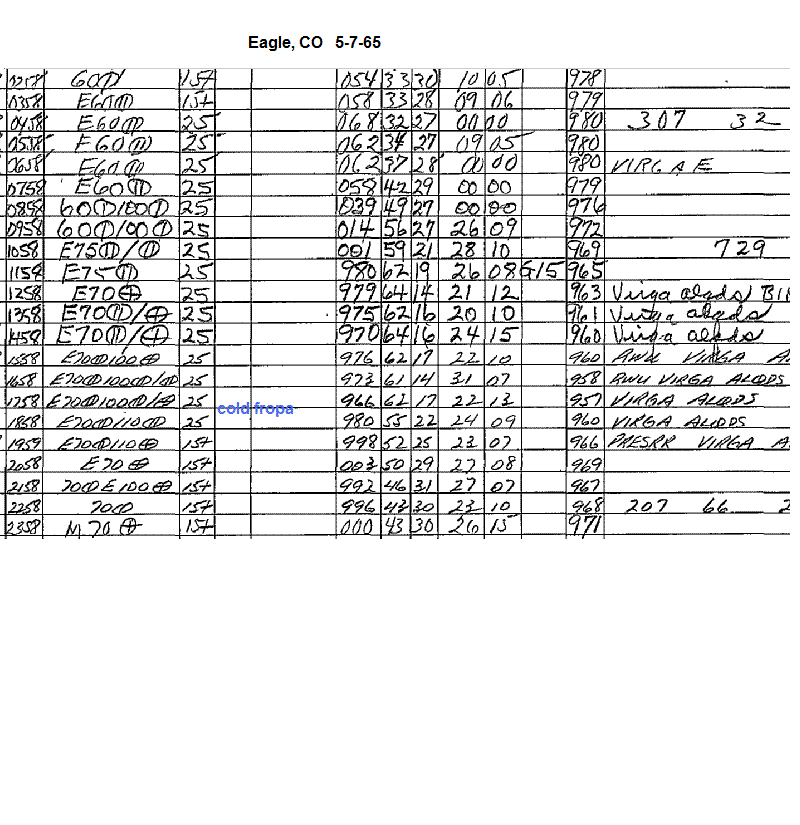 Eagle, CO 5-7-65
0258 60⦶ 15+ 054 33 30 10 05 978
0358 E60⦶ 15+ 058 33 28 09 06 979
0458 E60⦶ 25 068 32 27 00 00 980 307 32
0558 E60⦶ 25 062 34 27 09 05 980
0658 E60⦶ 25 062 37 28 00 00 980 VIRGA E
0758 E60⦶ 25 058 42 29 00 00 979
0858 60⦶100⦶ 25 039 49 27 00 00 976
0958 60⦶100⦶ 25 014 56 27 26 09 972
1058 E75⦶/⦶ 25 001 59 21 28 10 969 729
1159 E75⦶ 25 980 62 19 26 08 G15 965
1258 E70⊕ 25 979 64 14 21 12 963 Virga alqds
1358 E70⦶/⊕ 25 975 62 16 20 10 961 Virga alqds
1458 E70⦶/⊕ 25 970 64 16 24 15 960 Virga alqds
1558 E70⦶100⊕ 25 976 62 17 22 10 960 RWU VIRGA A
1658 E70⦶100⦶/⦶ 25 973 61 14 31 07 958 RWU VIRGA ALQDS
1758 E70⦶100⦶/⊕ 25 966 62 17 22 13 957 VIRGA ALQDS
cold fropa
1858 E70⦶110⊕ 25 980 55 22 24 09 960 VIRGA ALQDS
1959 E70⦶110⊕ 15+ 998 52 25 23 07 966 PRESRR VIRGA A
2058 E70⊕ 15+ 003 50 29 27 08 969
2158 70⦶E100⊕ 15+ 992 46 31 27 07 967
2258 70⦶ 15+ 996 43 30 23 10 968 207 66 2
2358 M70⊕ 15+ 000 43 30 26 15 971